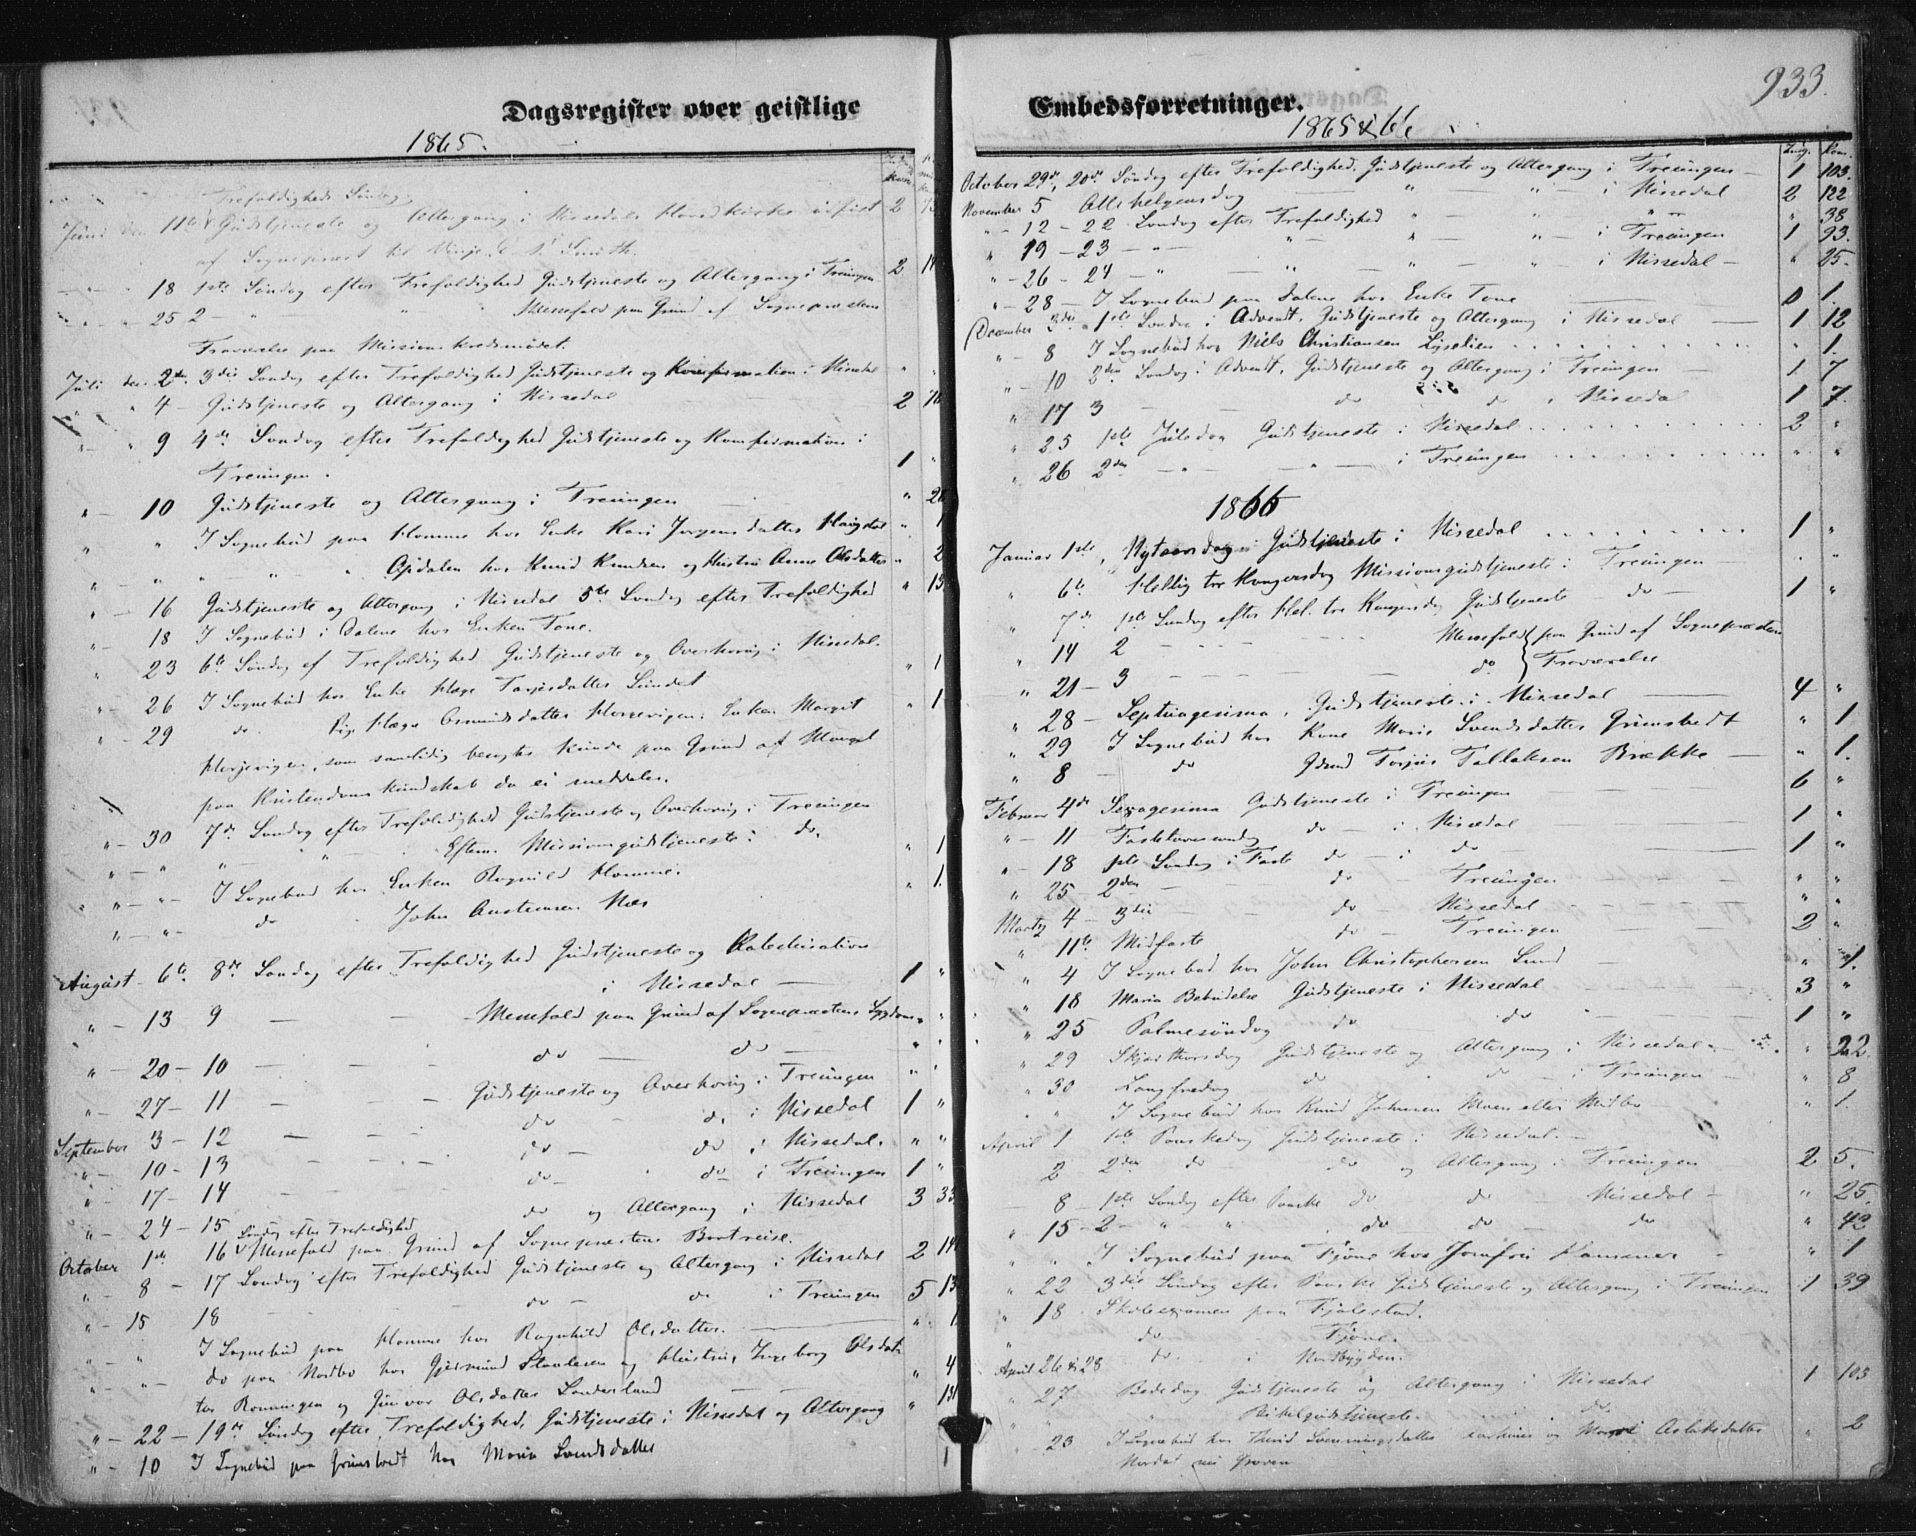 Dagsregister over geistlige
1865.
Trefoldigheds Søndag
Juni den 11te Gudstjeneste og Altergang i Nissedals Hovedkirke 2
af Sognepræst til Vinje Smith.
" " 18 1ste Søndag efter Trefoldighed Gudstjeneste og Altergang i Treungen 2
" " 25 2 - " " " Messefald paa Grund af Sognepræstens
Fraværelse paa Missionskredsmødet.
Juli den 2den 3die Søndag efter Trefoldighed Gudstjeneste og Konfirmation i Nissedal " "
" " 4 - Gudstjeneste og Altergang i Nissedal 2
" " 9 4de Søndag efter Trefoldighed Gudstjeneste og Konfirmation i
Treungen. 1 "
" - 10 Gudstjeneste og Altergang i Treungen "
" " I Sognebud paa Homme hos Enke Kari Jørgensdatter " 1
" " " " " hos Knud Knudsen og Hustru Anne Olsdatter " 2
" - 16 Gudstjeneste og Altergang i Nissedal 5te Søndag efter Trefoldighed " 13
" - 18 I Sognebud i Dalene hos Enken Tone.
" - 23 6te Søndag ef Trefoldighed Gudstjeneste og Overhøring i Nissedal.
" - 26 I Sognebud hos Enke Hæge Torjusdatter Lundet " 1
" - 29 do. Pige Hæge Osmundsdatter Enken Margit " 1
som samtidig kunde paa Grund af Mangel
paa Kristendomskundskab da ei meddeles.
" - 30 7de Søndag efter Trefoldighed Gudstjeneste og Overhøring i Treungen
" - " " - " - Efterm. Missionsgudstjeneste i do.
" " - " - I Sognebud hos Enken Ragnild Homme. " 1
" - " - do John Austensen Næs " 1.
August - 6te 8de Søndag efter Trefoldighed Gudstjeneste og Katechisation
i Nissedal - 1 "
" - 13 9 - - - Messefald paa Grund af Sognepræstens Sygdom " "
" - 20 - 10 - - - do - do - " "
" - 27 - 11 - - - Gudstjeneste og Overhøring i Treungen
September 3 - 12 - - - do - do. i Nissedal 1 "
" - 10 - 13 - - - do - do i Nissedal. " "
" - 17 - 14 - - - do - do - i Treungen 1 "
" - 24 - 15 do og Altergang i Nissedal 3 33
October 1ste 16 Søndag efter Trefoldighed Messefald paa Grund af Sognepræstens Bortreise.
" - 8 - 17 Søndag efter Trefoldighed Gudstjeneste og Altergang i Nissedal 2
" - 15 18 - - - do - do i Treungen 5 13
" " I Sognebud paa Homme hos Ragnhild Olsdatter. - " 1
" - " - do paa Nordbø hos Gjermund Staalesen og Hustru, Ingeborg Olsdat-
ter Rønningen og Gunvor Olsdatter Sønderland " 4
" - 22 - 19de Søndag efter Trefoldighed, Gudstjeneste i Nissedal og Altergang "
" - 10 I Sognebud paa Grimstvedt hos Maria Svendsdatter 1
Embedsforretninger.
933.
1865 & 66
October 29de, 20de Søndag efter Trefoldighed. Gudstjeneste og Altergang i Treungen - 1 103.
November 5 Allehelgensdag - " " - i Nissedal 2 122
" - 12 - 22 Søndag efter Trefoldighed " - " - " " 38
" 19 - 23 - " - " - " - " - i Treungen 1 93.
" - 26 - 24 - " - " - " " i Nissedal - " 25.
" - 28 - I Sognebud paa Dalene hos Enke Tone 0 1.
December 3die 1ste Søndag i Advendt, Gudstjeneste og Altergang i Nissedal - 1 12
" - 8 I Sognebud hos Niels Christiansen " 1.
" - 10 2den Søndag i Advendt, Gudstjeneste og Altergang i Treungen - 1 7
" 17 3 - - - do do i Nissedal 1 7.
" 25 1ste Juledag Gudstjeneste i Nissedal 2 "
" 26 2den - " - " - i Treungen " "
1866
Januar 1ste, Nytaarsdag Gudstjeneste i Nissedal 1 "
" 6te Hellig tre Kongersdag Missionsgudstjeneste i Treungen - " "
" 7de 1ste Søndag efter Hel. tre Kongersdag Gudstjeneste - do - 1 "
" 14 2 - - - Messefald paa Grund af Sognepræstens
" 21 - 3 - - - do Fraværelse
" 28 - Septuagesima, Gudstjeneste i Nissedal - 4 "
" 29 I Sognebud hos Kone Marie Svendsdatter Grimstvedt " 1
" 8 - do Gdmd Torjus Tallaksen Brække - " 1.
Februar 4de Sexagesima Gudstjeneste i Treungen - 6 "
" - 11 Fastelavnssøndag do - i Nissedal - 1 "
" - 18 1ste Søndag i Faste do - i do - 1 "
" 25 - 2den - do - Treungen - " "
Martz 4 - 3die - do - Nissedal - " "
" 11te Midfaste do - Treungen - 2 "
" 4 I Sognebud hos John Christophersen Lund " 1.
" 18 Maria Bebudelse Gudstjeneste i Nissedal 3 "
" 25 Palmesøndag do do 1 "
" 29 Skjærthorsdag Gudstjeneste og Altergang i Nissedal " 22.
" 30 Langfredag do do - i Treungen " 8
" " I Sognebud hos Knud Johnsen Moen eller Midbø " 1.
April 1 1ste Paaskedag Gudstjeneste i Nissedal. -
2 2den do do og Altergang i Treungen 2 5.
- 8 - 1ste Søndag efter Paaske do do - Nissedal - " 25.
" 15 - 2 - " " do do - do " 42
" " I Sognebud paa Fjone hos Jomfru " 1
" 22 3die Søndag efter Paaske Gudstjeneste og Altergang i Treungen 1 39
" 18. Skoleexamen paa Fjalestad.
" do Fjone.
April 26 & 28 do. i Nordbygden.
" 27 Bededag Gudstjeneste og Altergang i Nissedal 1 103
" " " Bibelgudstjeneste. do
" 23 I Sognebud hos Thorid Svenningsdatter og Margit Aslaksdatter " 2